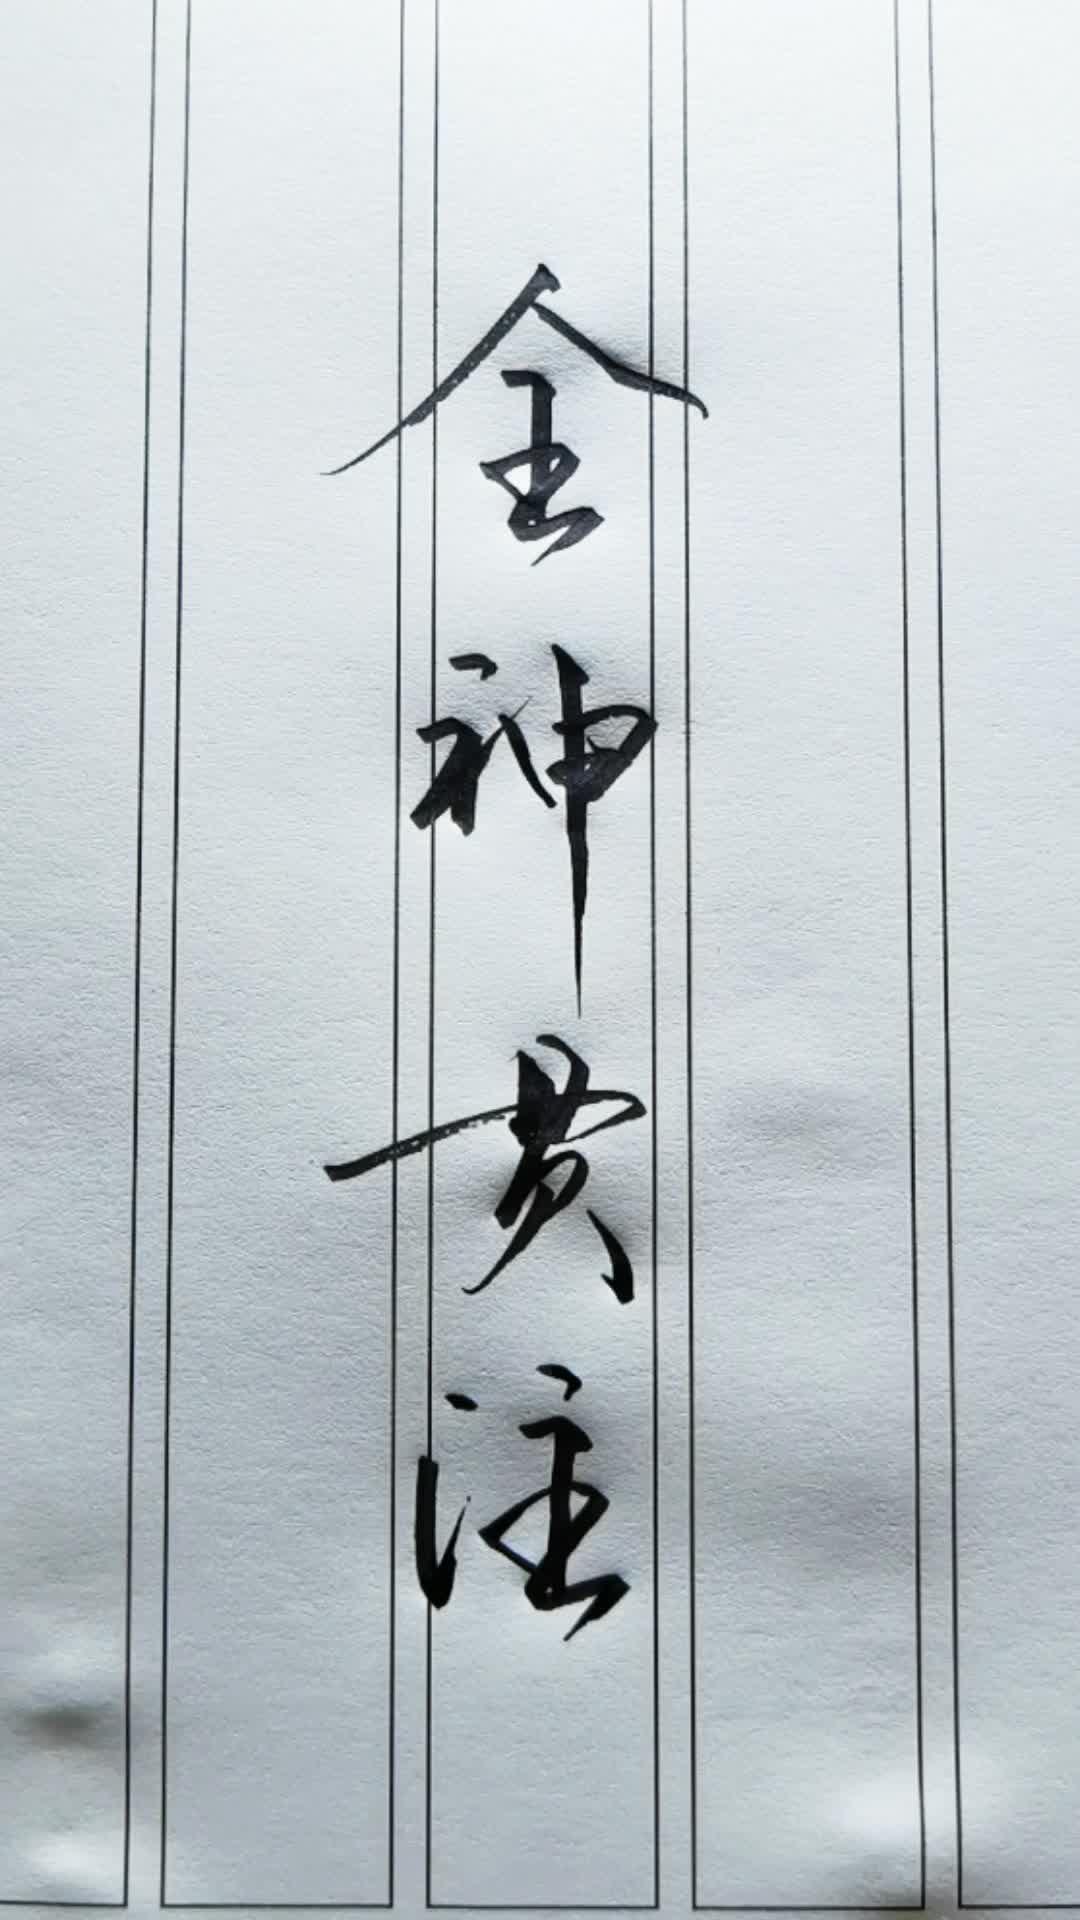 全神贯注